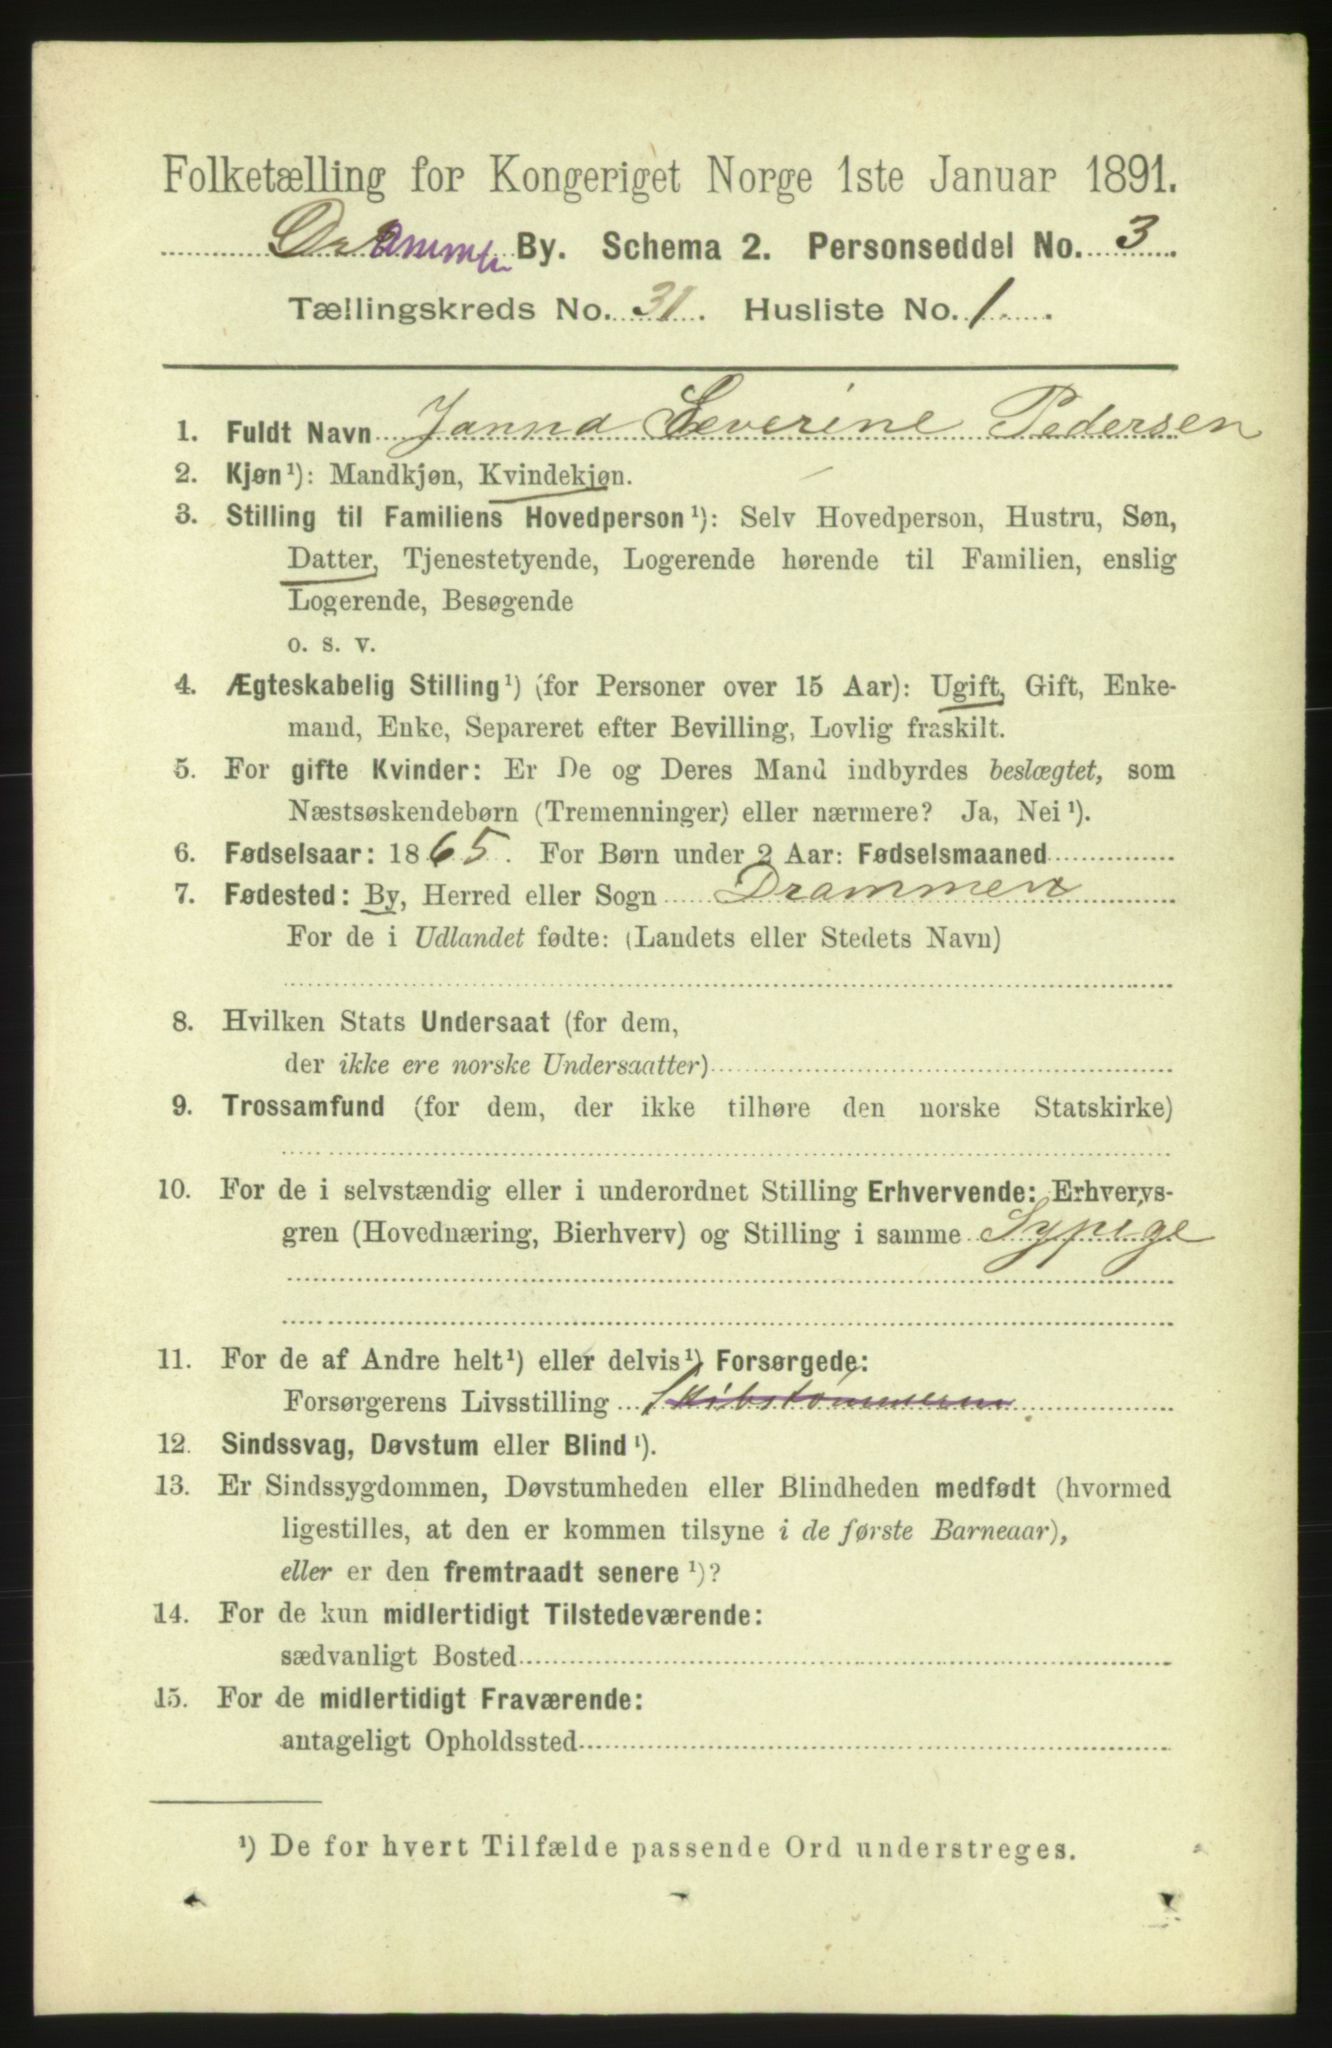 Folketælling for Kongeriget Norge 1ste Januar 1891.
Drammen By. Schema 2. Personseddel No. 3
Tællingskreds No. 31. Husliste No. 1.
1. Fuldt Navn Janna Severine Pedersen
2. Kjøn¹): Mandkjøn, Kvindekjøn.
3. Stilling til Familiens Hovedperson¹): Selv Hovedperson, Hustru, Søn,
Datter, Tjenestetyende, Logerende hørende til Familien, enslig
Logerende, Besøgende
o. s. v.
4. Ægteskabelig Stilling¹) (for Personer over 15 Aar): Ugift, Gift, Enke-
mand, Enke, Separeret efter Bevilling, Lovlig fraskilt.
5. For gifte Kvinder: Er De og Deres Mand indbyrdes beslægtet, som
Næstsøskendebørn (Tremenninger) eller nærmere? Ja, Nei¹).
6. Fødselsaar: 1865. For Børn under 2 Aar: Fødselsmaaned
7. Fødested: By, Herred eller Sogn Drammen
For de i Udlandet fødte: (Landets eller Stedets Navn)
8. Hvilken Stats Undersaat (for dem,
der ikke ere norske Undersaatter)
9. Trossamfund (for dem, der ikke tilhøre den norske Statskirke)
10. For de i selvstændig eller i underordnet Stilling Erhvervende: Erhvervs-
gren (Hovednæring, Bierhverv) og Stilling i samme Sypige
11. For de af Andre helt¹) eller delvis¹) Forsørgede:
Forsørgerens Livsstilling
12. Sindssvag, Døvstum eller Blind¹).
13. Er Sindssygdommen, Døvstumheden eller Blindheden medfødt (hvormed
ligestilles, at den er kommen tilsyne i de første Barneaar),
eller er den fremtraadt senere¹)?
14. For de kun midlertidigt Tilstedeværende:
sædvanligt Bosted
15. For de midlertidigt Fraværende:
antageligt Opholdssted
¹) De for hvert Tilfælde passende Ord understreges.